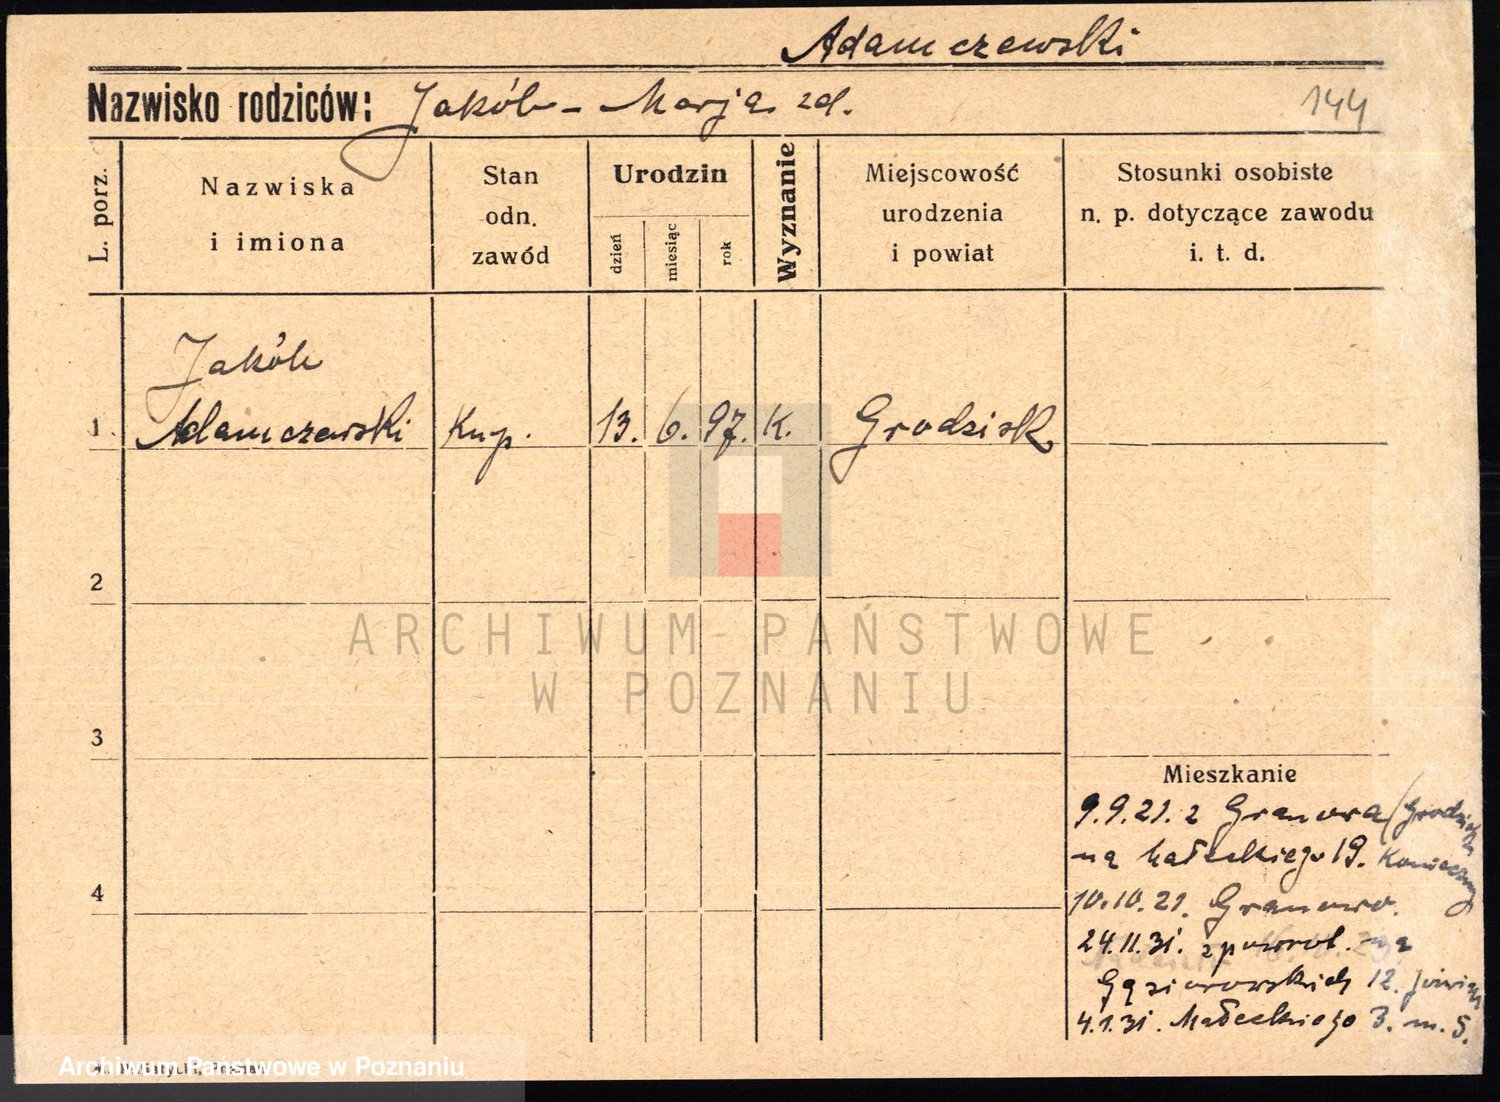 Adamczewski
Nazwisko rodziców: Jakób – Marja zd.
144
L. porz.
Nazwiska
i imiona
Stan
odn.
zawód
Urodzin
dzień
miesiąc
rok
Wyznanie
Miejscowość
urodzenia
i powiat
Stosunki osobiste
n. p. dotyczące zawodu
i. t. d.
Jakób
1 Adamczewski Kup. 13. 6. 97. K. Grodzisk
2
3
4
ARCHIWUM PAŃSTWOWE
W POZNANIU
Mieszkanie
9.9.21. z Granowa (Grodzisk
na Małeckiego 19.
10.10.21. Granowo.
24.11.31. z powrot. na
Gąsiorowskich 12.
4.1.31. Małeckiego 3. m. 5.
Archiwum Państwowe w Poznaniu